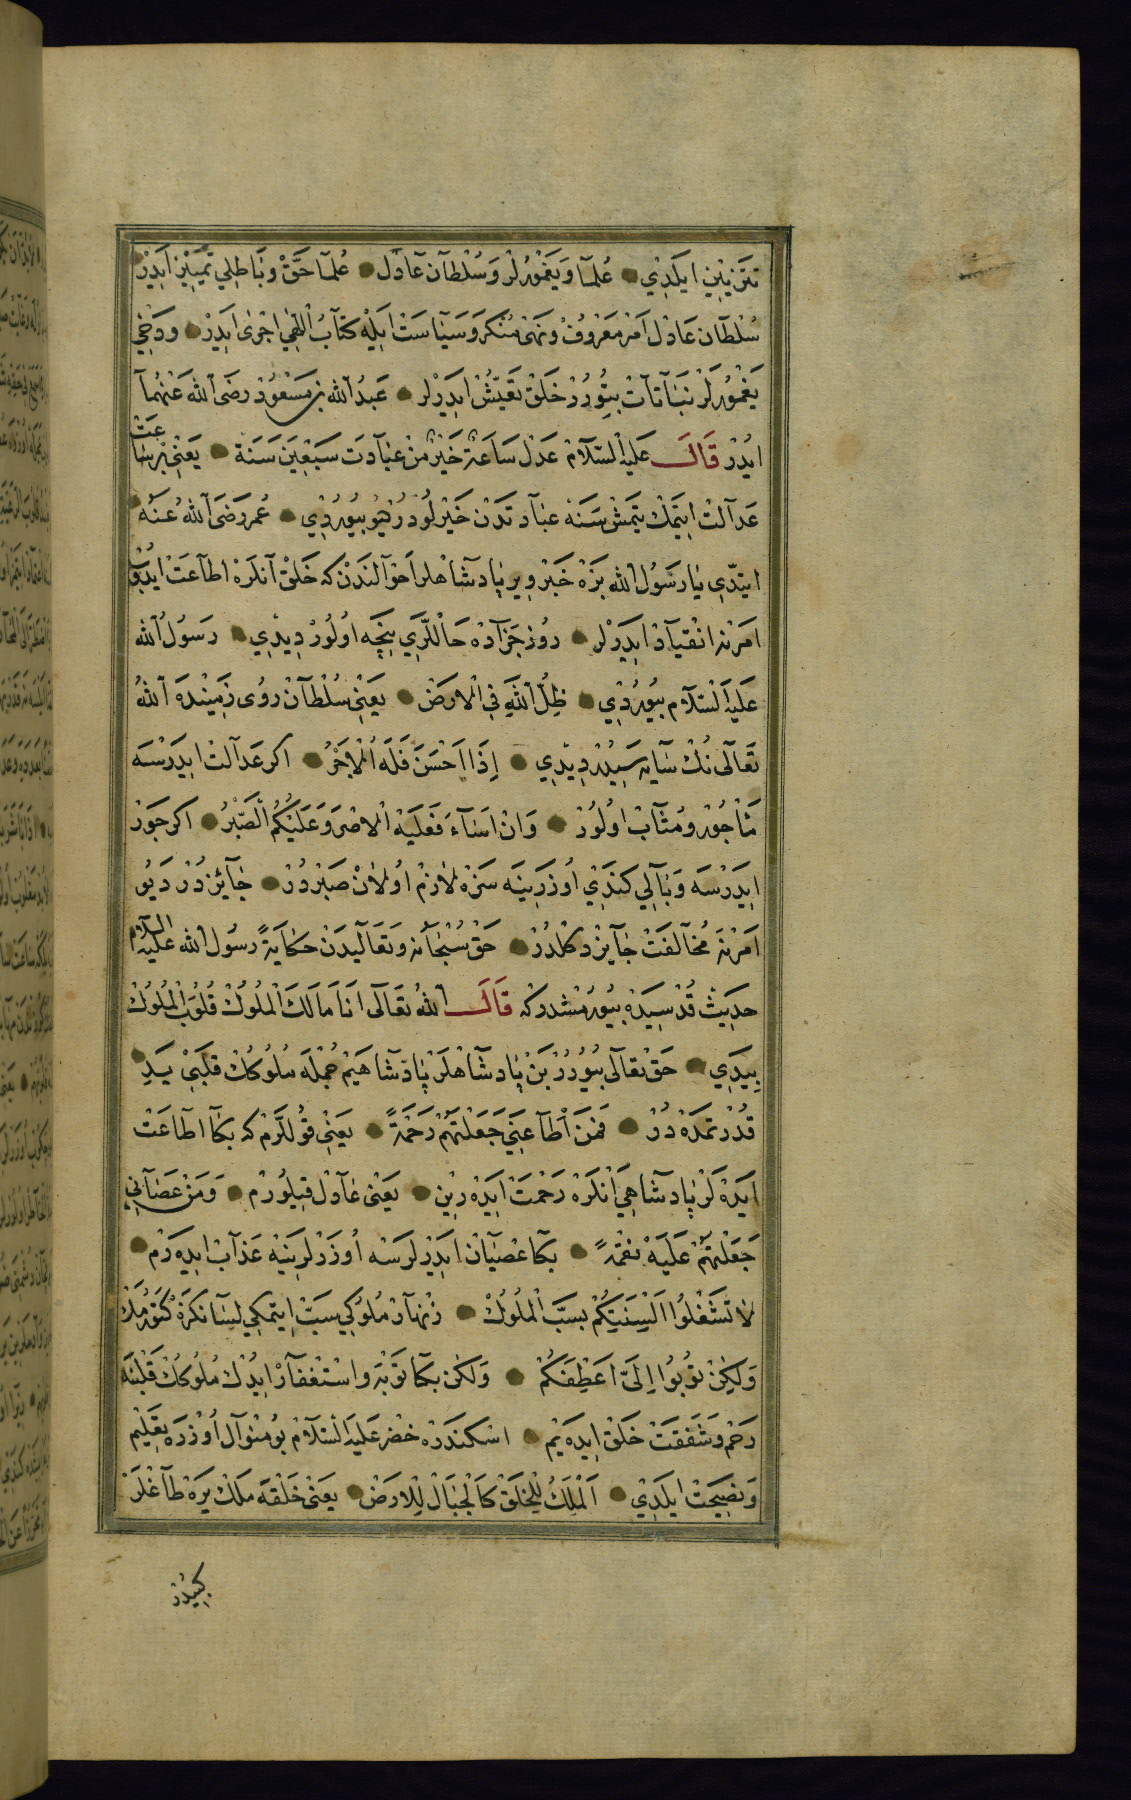 تَزْيِينِ ايلَدِي عُلَمَا وَيَغْمُورْلَرْ وَسُلْطَانِ عَادِلْ عُلَمَا حَقّْ وَبَاطِلِي تَمْيِيزْ اِيَدِرْ
سُلْطَانِ عَادِلْ اَمْرِ مَعْرُوفْ وَنَهْىِ مُنْكَرْ وَسَيَاسَتْ اِيلَهْ كِتَابُ اللّٰهِي اجْرٰى اِيَدِرْ وَدَخِي
يَغْمُورْلَرْ نَبَاتَاتْ بِتُورُرْ خَلَقْ تَعَيُّشْ اِيدَرْلَرْ عَبْدُ اللّٰه بن مَسْعُودْ رَضِىَ اللّٰهُ عَنْهُمَا
ايْدُرْ قَالَ عَلَيْهِ السَّلَامْ عَدْلُ سَاعَةٍ خَيْرٌ مِنْ عِبَادَتِ سَبْعِينَ سَنَةً يَعْنِي بِرْ سَاعَتْ
عَدَالَتْ اِيتْمَكْ يَتْمِشْ سَنَهْ عِبَادَتَدَنْ خَيْرْلُودُرْ دِيُو بِيُورْدِي عُمَرْ رَضِىَ اللّٰهُ عَنْهُ
ايتْدِي يَا رَسُولَ اللّٰه بِزَهْ خَبَرْ وِيرْ پَادِشَاهْلَرْ اَحْوَالِنْدَنْ كِه خَلْقْ آنْلَرَهْ اطَاعَتْ ايْدُبْ
اَمْرِنَه انْقِيَادْ ايدَرْلَرْ رُوزِ جَزَادَهْ حَالْلَرِي نِيجَه اُولُورْ دِيدِي رَسُولُ اللّٰه
عَلَيْهِ السَّلَام بِيُورْدِي ظِلُّ اللّٰهِ فِي الْاَرْضْ يَعْنِي سُلْطَانْ رُوىِ زَمِينْدَه اللّٰهُ
تَعَالَى نُكْ سَايَه سِيدُرْ دِيدِي اِذَا اَحْسَنَ فَلَهُ الْاَجْرُ اكر عَدَالَتْ ايدَرْسَه
مَأْجُورْ وَمُثَابْ اُولُورْ وَانْ اَسَاءَ فَعَلَيْهِ الْاِصْرُ وَعَلَيْكُمُ الصَّبْرُ اكر جَوْرْ
ايدَرْسَه وَبَالِي كَنْدِي اُوزَرِينَه سِزَهْ لَازِمْ اُولَانْ صَبْرْدُرْ جَائِرْدُرْ دِيُو
اَمْرِنَه مُخَالَفَتْ جَايِزْ دَكُلْدُرْ حَقّْ سُبْحَانَه وَتَعَالَيدَنْ حِكَايَةً رَسُولُ اللّٰه عَلَيْهِ السَّلَام
حَدِيثِ قُدْسِيدَهْ بِيُورْمِشْدُرْ كِه قَالَ اللّٰهُ تَعَالَى اَنَا مَالِكُ الْمُلُوكْ قُلُوبُ الْمُلُوكْ
بِيَدِي حَقّْ تَعَالَى بِيُورُرْ بَنْ پَادِشَاهْلَرْ پَادِشَاهِيَمْ جُمْلَه مُلُوكُكْ قَلْبِي يَدِ
قُدْرَتِمْدَهْ دُرْ فَمَنْ اَطَاعَنِي جَعَلْتُهُمْ رَحْمَةً يَعْنِي قُولْلَرِمْ كه بَكَا اطَاعَتْ
ايدَهْ لَرْ پَادِشَاهِي آنْلَرَهْ رَحْمَتْ ايدَهْ رِينْ يَعْنِي عَادِلْ قِيلُورَمْ وَمَنْ عَصَانِي
جَعَلْتُهُمْ عَلَيْهِ نِقْمَةً بَكَا عِصْيَانْ ايدَرْلَرْسَه اُوزَرْلَرِينَه عَذَابْ ايدَرَمْ
لَا تَشْغَلُوا اَلْسِنَتَكُمْ بِسَبِّ الْمُلُوكْ زِنْهَارْ مُلُوكِي سَبّْ اِيتْمَكِي لِسَانْكَزَهْ كَتُورْمَكْ
وَلٰكِنْ تُوبُوا اِلَىَّ اَعْطِفْكُمْ وَلٰكِنْ بَكَا تَوْبَه وَاسْتِغْفَارْ ايْدُكْ مُلُوكُكْ قَلْبِنَه
رَحْم وَشَفَقَتْ خَلْقْ اِيدَهْ يِمْ اسْكَنْدَرَه خِضْر عَلَيْهِ السَّلَامْ بُو مِنْوَالْ اُوزْرَه تَعْلِيم
وَنَصِيحَتْ ايلَدِي اَلْمَلِكُ لِلْخَلْقِ كَالْجِبَالِ لِلْاَرْضْ يَعْنِي خَلْقَه مَلِكْ يَرَهْ طَاغْلَرْ
كبيدر